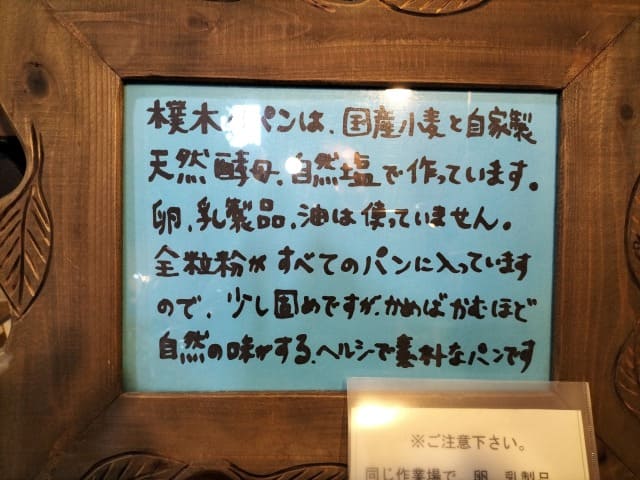 樸木のパンは、国産小麦と自家製
天然酵母、自然塩で作っています。
卵、乳製品、油は使っていません。
全粒粉がすべてのパンに入っています
ので、少し固めですが、かめばかむほど
自然の味がする、ヘルシで素朴なパンです
※ご注意下さい。
同じ作業場で、卵、乳製品